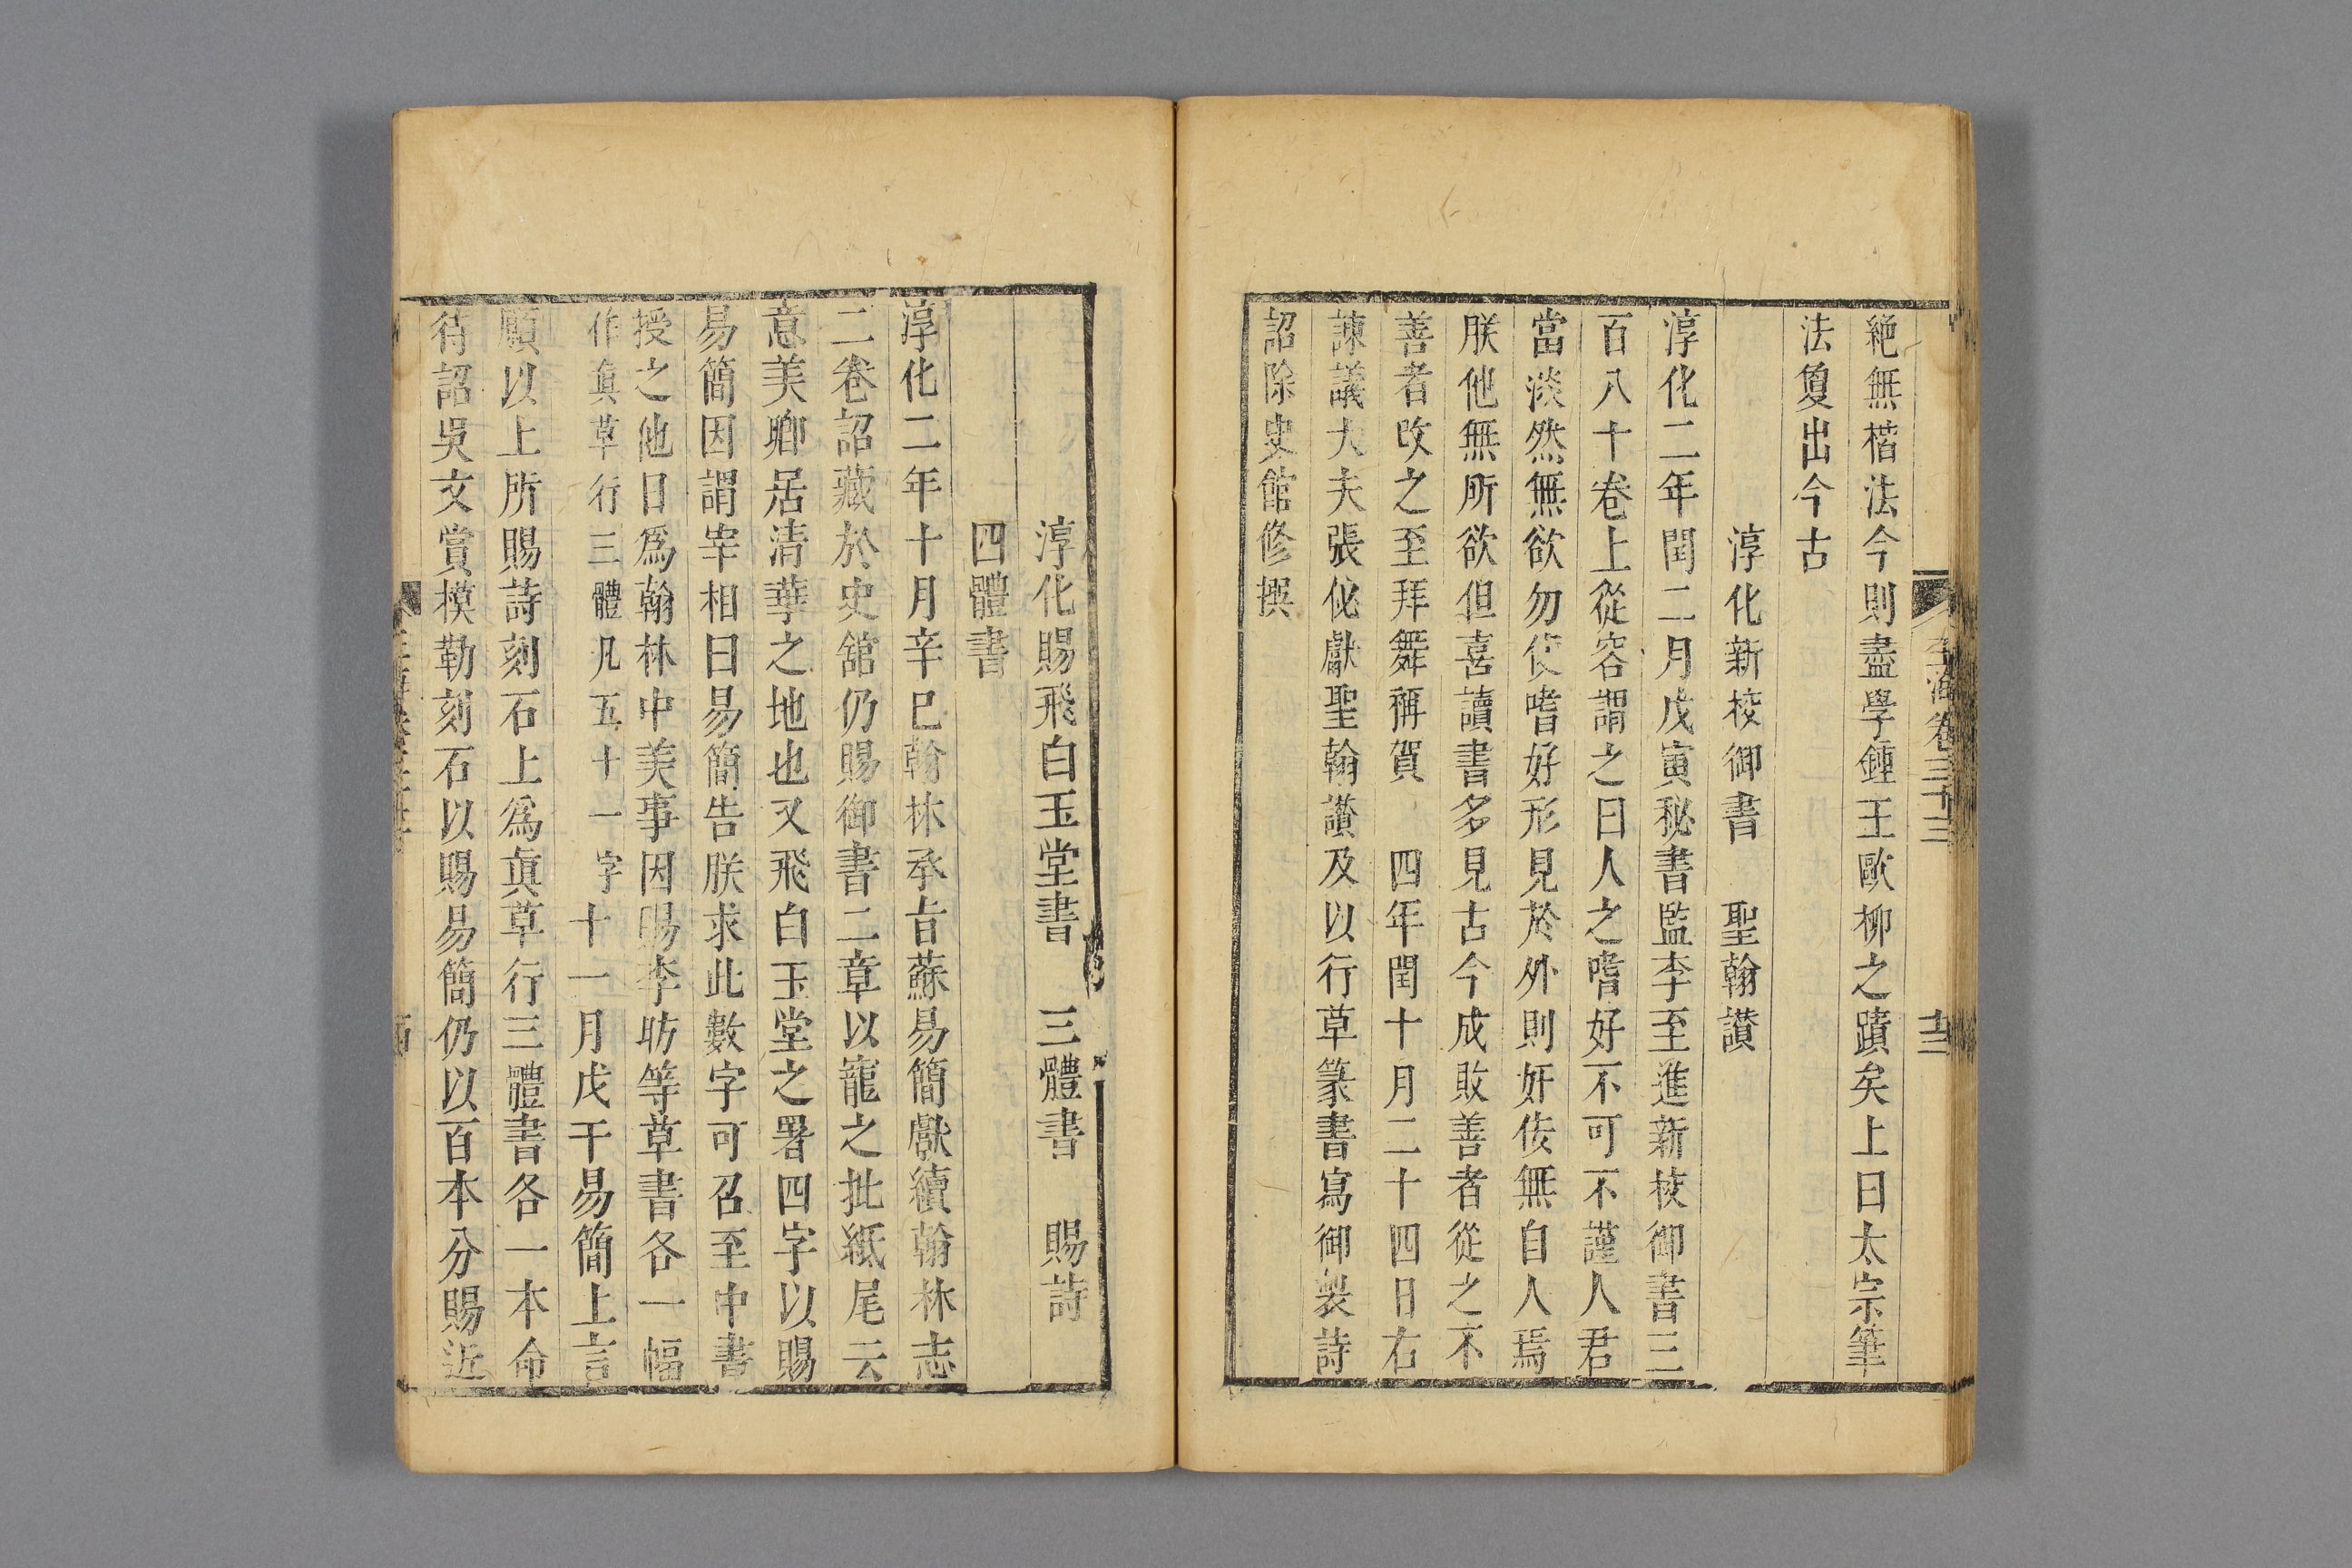 玉海卷三十三
絶無楷法今則盡學鍾王歐柳之蹟矣上曰太宗筆
法敻出今古
淳化新校御書 聖翰讃
淳化二年閏二月戊寅秘書監李至進新校御書三
百八十卷上從容謂之曰人之嗜好不可不謹人君
當淡然無欲勿使嗜好形見於外則奸佞無自人焉
朕他無所欲但喜讀書多見古今成敗善者從之不
善者改之至拜舞稱賀 四年閏十月二十四日右
諫議大夫張佖獻聖翰讃及以行草篆書寫御製詩
詔除史館修撰
淳化賜飛白玉堂書 三體書 賜詩
四體書
淳化二年十月辛巳翰林承旨蘇易簡獻續翰林志
二卷詔藏於史舘仍賜御書二章以寵之批紙尾云
意美卿居清華之地也又飛白玉堂之署四字以賜
易簡因謂宰相曰易簡告朕求此數字可召至中書
授之他日爲翰林中美事因賜李昉等草書各一幅
作眞草行三體凡五十一字 十一月戊干易簡上言
願以上所賜詩刻石上爲眞草行三體書各一本命
待詔吳文賞模勒刻石以賜易簡仍以百本分賜近